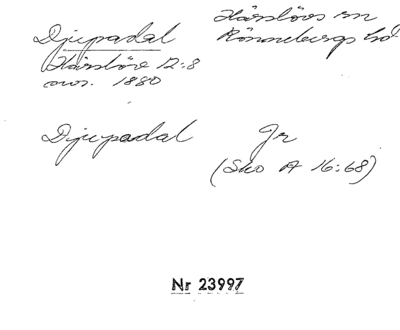 Djupadal
Härslöv 12:8
avs. 1880
Härslövs sn
Rönnebergs hd
Djupadal
Gr
(Sko A 16:68)
Nr 23997